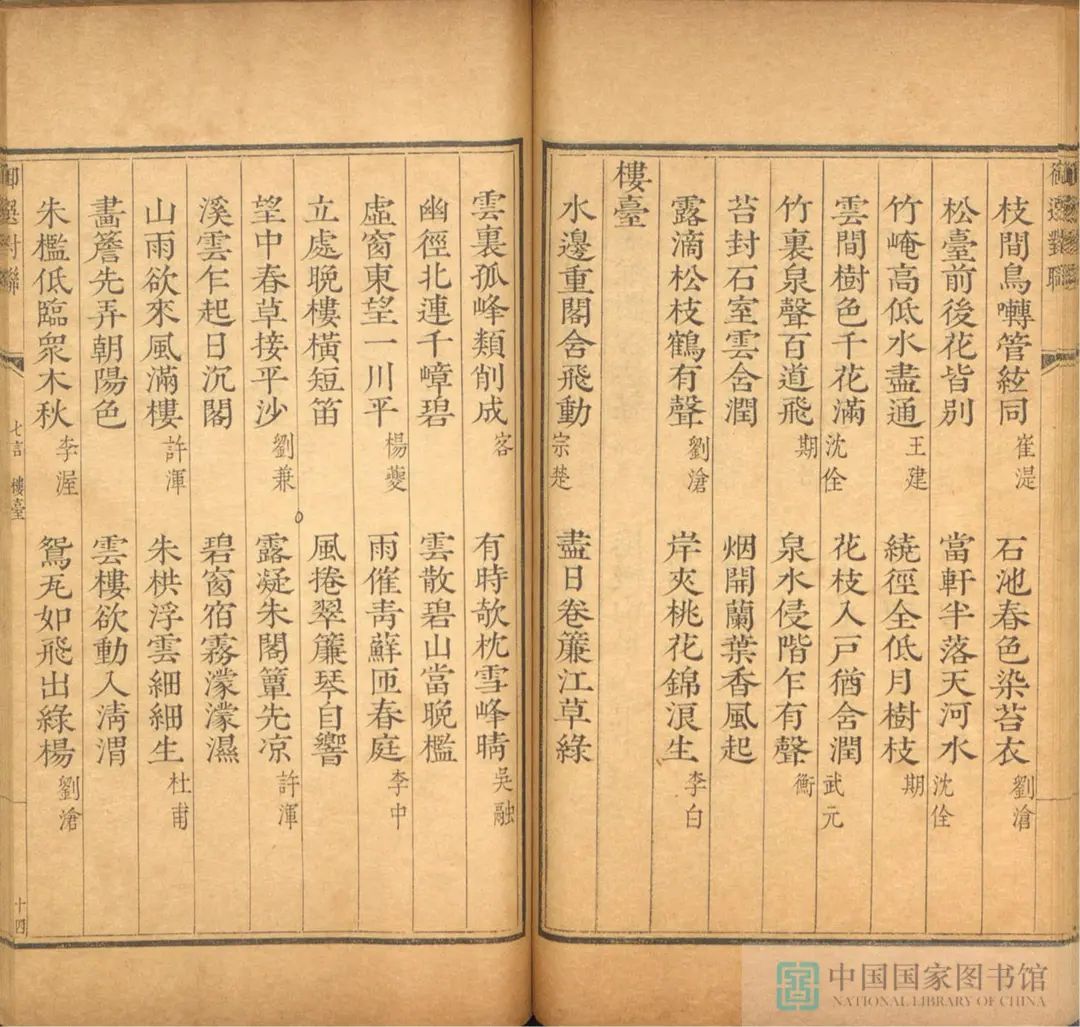 御選對聯
枝間鳥囀管絃同 崔湜 石池春色染苔衣 劉滄
松臺前後花皆別 當軒半落天河水 沈佺
竹崦高低水盡通 王建 繞徑全低月樹枝 期
雲間樹色千花滿 沈佺 花枝入戶猶含潤 武元
竹裏泉聲百道飛 期 泉水侵階乍有聲 衡
苔封石室雲含潤 烟開蘭葉香風起
露滴松枝鶴有聲 劉滄 岸夾桃花錦浪生 李白
樓臺
水邊重閣含飛動 宗楚 盡日卷簾江草綠
雲裏孤峰類削成 客 有時欹枕雪峰晴 吳融
幽徑北連千嶂碧 雲散碧山當晚檻
虛窗東望一川平 楊夔 雨催青蘚匝春庭 李中
立處晚樓橫短笛 風捲翠簾琴自響
望中春草接平沙 劉兼 露凝朱閣簟先凉 許渾
溪雲乍起日沉閣 碧窗宿霧濛濛濕
山雨欲來風滿樓 許渾 朱栱浮雲細細生 杜甫
畵簷先弄朝陽色 雲樓欲動入淸渭
朱檻低臨衆木秋 李渥 鴛瓦如飛出綠楊 劉滄
御選對聯 七言 樓臺 十四
中国国家图书馆
NATIONAL LIBRARY OF CHINA